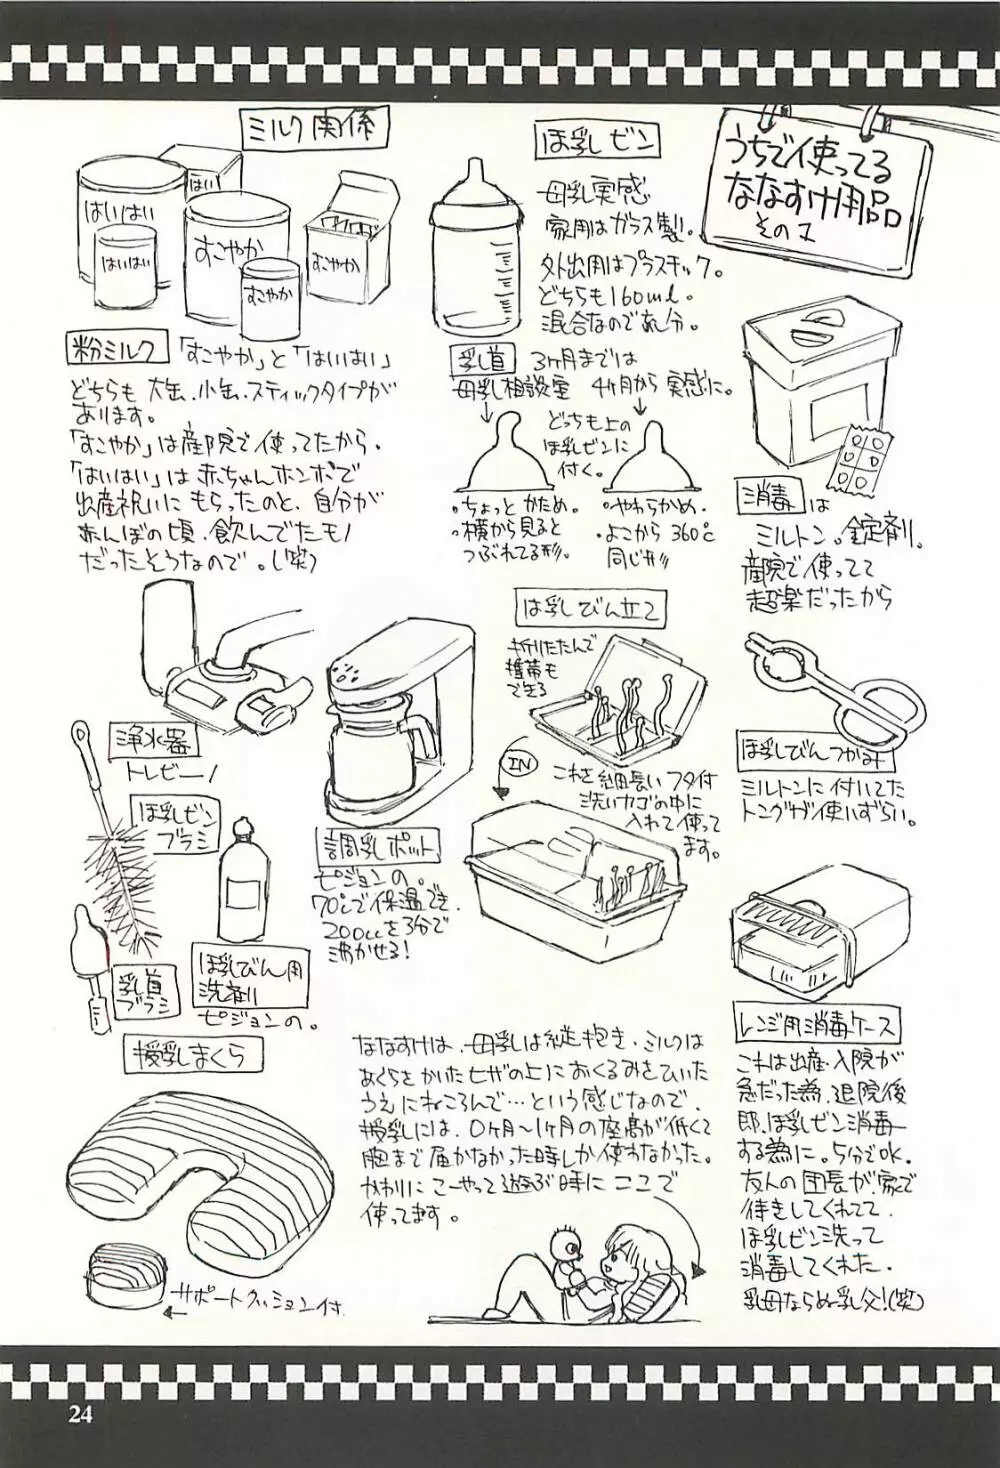 うちで使ってる
ななすけ用品
その1
ミルク関係
はいはい
はい
はいはい
すこやか
すこやか
すこやか
粉ミルク 「すこやか」と「はいはい」
どちらも 大缶、小缶、スティックタイプが
あります。
「すこやか」は産院で使ってたから。
「はいはい」は赤ちゃんホンポで
出産祝いにもらったのと、自分が
赤んぼの頃、飲んでたモノ
だったそうなので。(笑)
ほ乳ビン
母乳実感
家用はガラス製。
外出用はプラスチック。
どちらも160ml。
混合なので充分。
乳首 3ヶ月までは
母乳相談室 4ヶ月から実感に。
どっちも上の
ほ乳ビンに
付く。
・ちょっとかため。
・横から見ると
つぶれてる形。
・やわらかめ。
・よこから360℃
同じ形
消毒は
ミルトン。錠剤。
産院で使ってて
超楽だったから
ほ乳びんつかみ
ミルトンに付いてた
トングが使いずらい。
ほ乳びん立て
折りたたんで
携帯も
できる
IN
これを細長いフタ付
洗いカゴの中に
入れて使って
ます。
浄水器
トレビーノ
ほ乳ビン
ブラシ
乳首
ブラシ
ほ乳びん用
洗剤
ピジョンの。
調乳ポット
ピジョンの。
70℃で保温でき、
200ccを3分で
沸かせる!
レンジ用消毒ケース
これは出産・入院が
急だった為、退院後
即、ほ乳ビン消毒
する為に。5分でOK.
友人の団長が家で
待機してくれてて、
ほ乳ビン洗って
消毒してくれた。
乳母ならぬ乳父!(笑)
授乳まくら
サポートクッション付
ななすけは、母乳は縦抱き、ミルクは
あぐらをかいたヒザの上におくるみをひいた
うえにねころんで…という感じなので、
授乳には、0ヶ月〜1ヶ月の座高が低くて
胸まで届かなかった時しか使わなかった。
かわりにこーやって遊ぶ時にここで
使ってます。
24